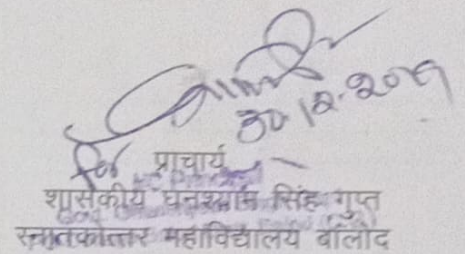 30.12.2019
for प्राचार्य
शासकीय घनश्याम सिंह गुप्त
स्नातकोत्तर महाविद्यालय बालोद